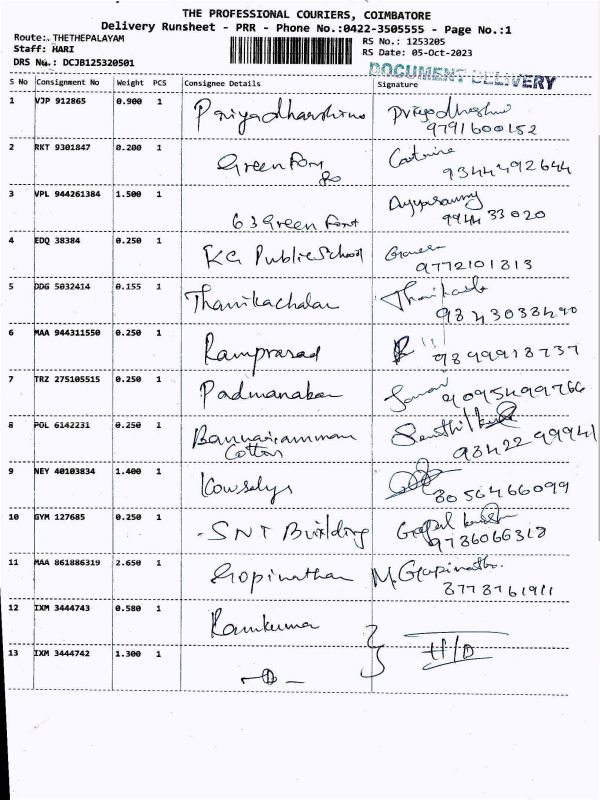 THE PROFESSIONAL COURIERS, COIMBATORE
Delivery Runsheet - PRR - Phone No.:0422-3505555 - Page No.:1
Route:. THETHEPALAYAM
RS No.: 1253205
Staff: HARI
RS Date: 05-Oct-2023
DRS No.: DCJB125320501
DOCUMENT DELIVERY
S No Consignment No Weight PCS Consignee Details Signature
1 VJP 912865 0.900 1 Priyadharshine Priyadharshni
9791600152
2 RKT 9301847 0.200 1 Green
9344492644
3 VPL 944261384 1.500 1 63 Green Font Ayyasamy
9944 33 020
4 EDQ 38384 0.250 1 KG Public School
9772101813
5 DDG 5032414 0.155 1 Thanikachalan
9843038490
6 MAA 944311550 0.250 1 Ramprasad
9899918737
7 TRZ 275105515 0.250 1 Padmanaban
9095499766
8 POL 6142231 0.250 1 Bannariamman Senthil
Cotton 9842299941
9 NEY 40103834 1.400 1 Kowsalya
8056466099
10 GYM 127685 0.250 1 SNT Building Gopal
9786066318
11 MAA 861886319 2.650 1 Gopinathan M. Gopinath
8778761911
12 IXM 3444743 0.580 1 Ramkumar
H/O
13 IXM 3444742 1.300 1